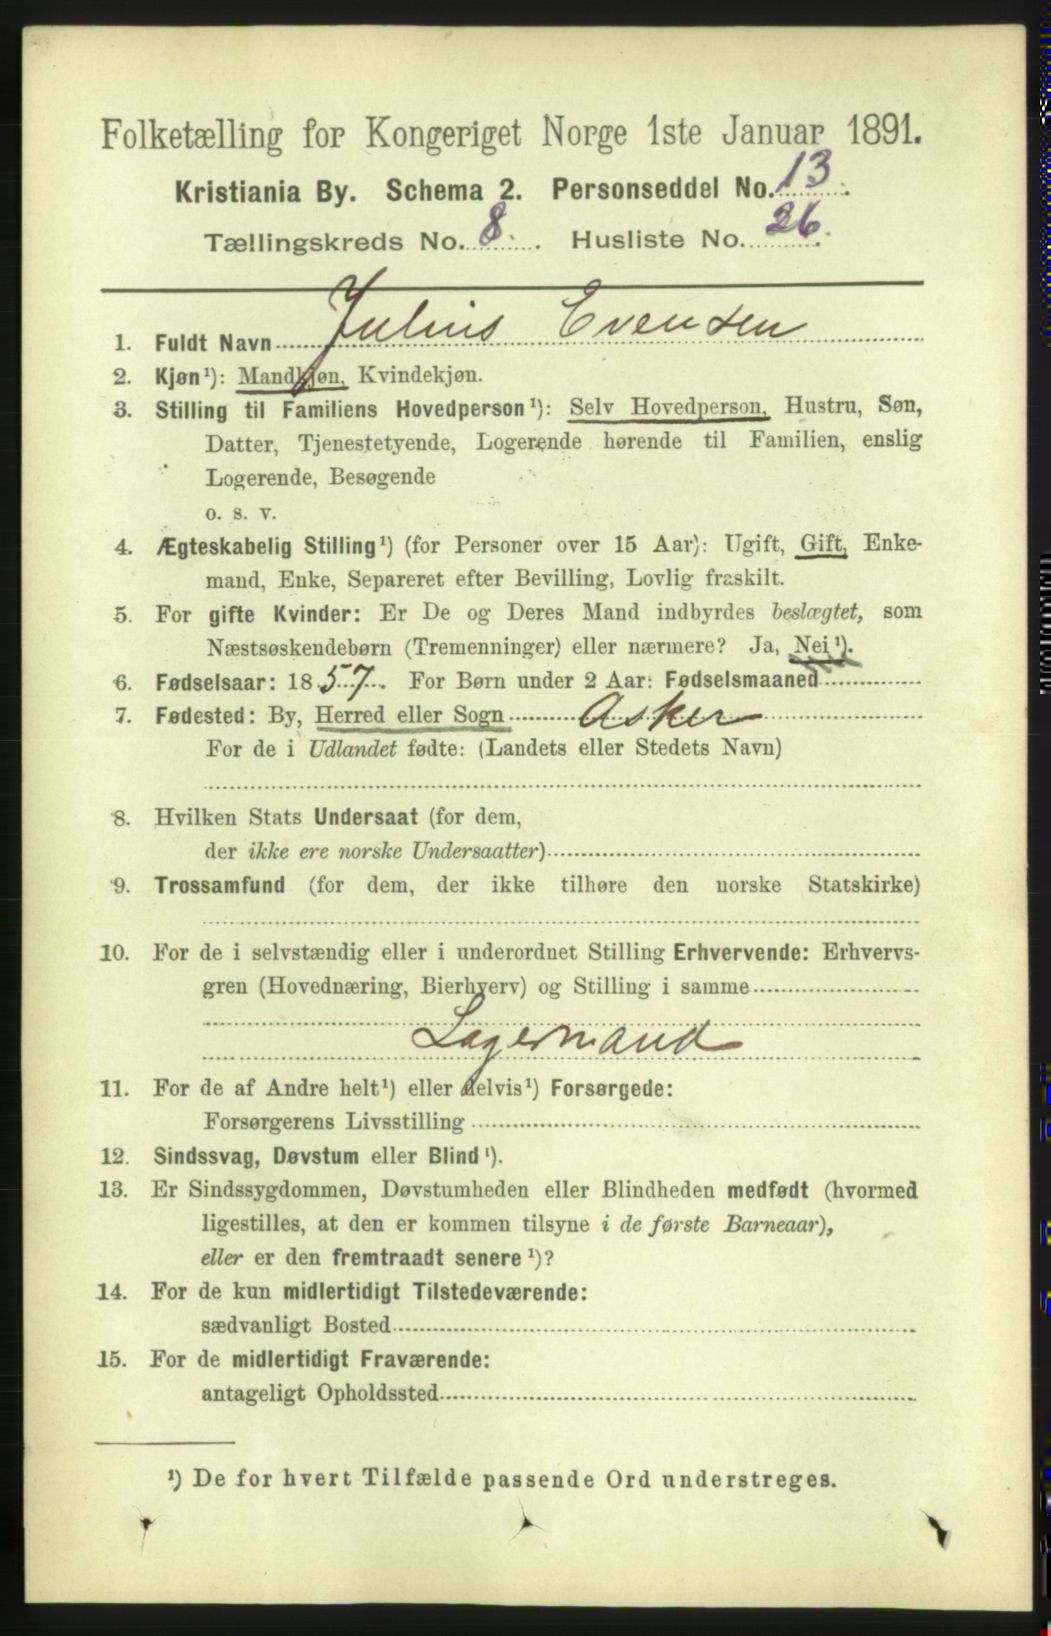 Folketælling for Kongeriget Norge 1ste Januar 1891.
Kristiania By. Schema 2. Personseddel No. 13.
Tællingskreds No. 8. Husliste No. 26.
1. Fuldt Navn Julius Evensen
2. Kjøn¹): Mandkjøn, Kvindekjøn.
3. Stilling til Familiens Hovedperson¹): Selv Hovedperson, Hustru, Søn,
Datter, Tjenestetyende, Logerende hørende til Familien, enslig
Logerende, Besøgende
o. s. v.
4. Ægteskabelig Stilling¹) (for Personer over 15 Aar): Ugift, Gift, Enke-
mand, Enke, Separeret efter Bevilling, Lovlig fraskilt.
5. For gifte Kvinder: Er De og Deres Mand indbyrdes beslægtet, som
Næstsøskendebørn (Tremenninger) eller nærmere? Ja, Nei¹).
6. Fødselsaar: 1857. For Børn under 2 Aar: Fødselsmaaned
7. Fødested: By, Herred eller Sogn Asker
For de i Udlandet fødte: (Landets eller Stedets Navn)
8. Hvilken Stats Undersaat (for dem,
der ikke ere norske Undersaatter)
9. Trossamfund (for dem, der ikke tilhøre den norske Statskirke)
10. For de i selvstændig eller i underordnet Stilling Erhvervende: Erhvervs-
gren (Hovednæring, Bierhverv) og Stilling i samme
Lagermand
11. For de af Andre helt¹) eller delvis¹) Forsørgede:
Forsørgerens Livsstilling
12. Sindssvag, Døvstum eller Blind¹).
13. Er Sindssygdommen, Døvstumheden eller Blindheden medfødt (hvormed
ligestilles, at den er kommen tilsyne i de første Barneaar),
eller er den fremtraadt senere¹)?
14. For de kun midlertidigt Tilstedeværende:
sædvanligt Bosted
15. For de midlertidigt Fraværende:
antageligt Opholdssted
¹) De for hvert Tilfælde passende Ord understreges.